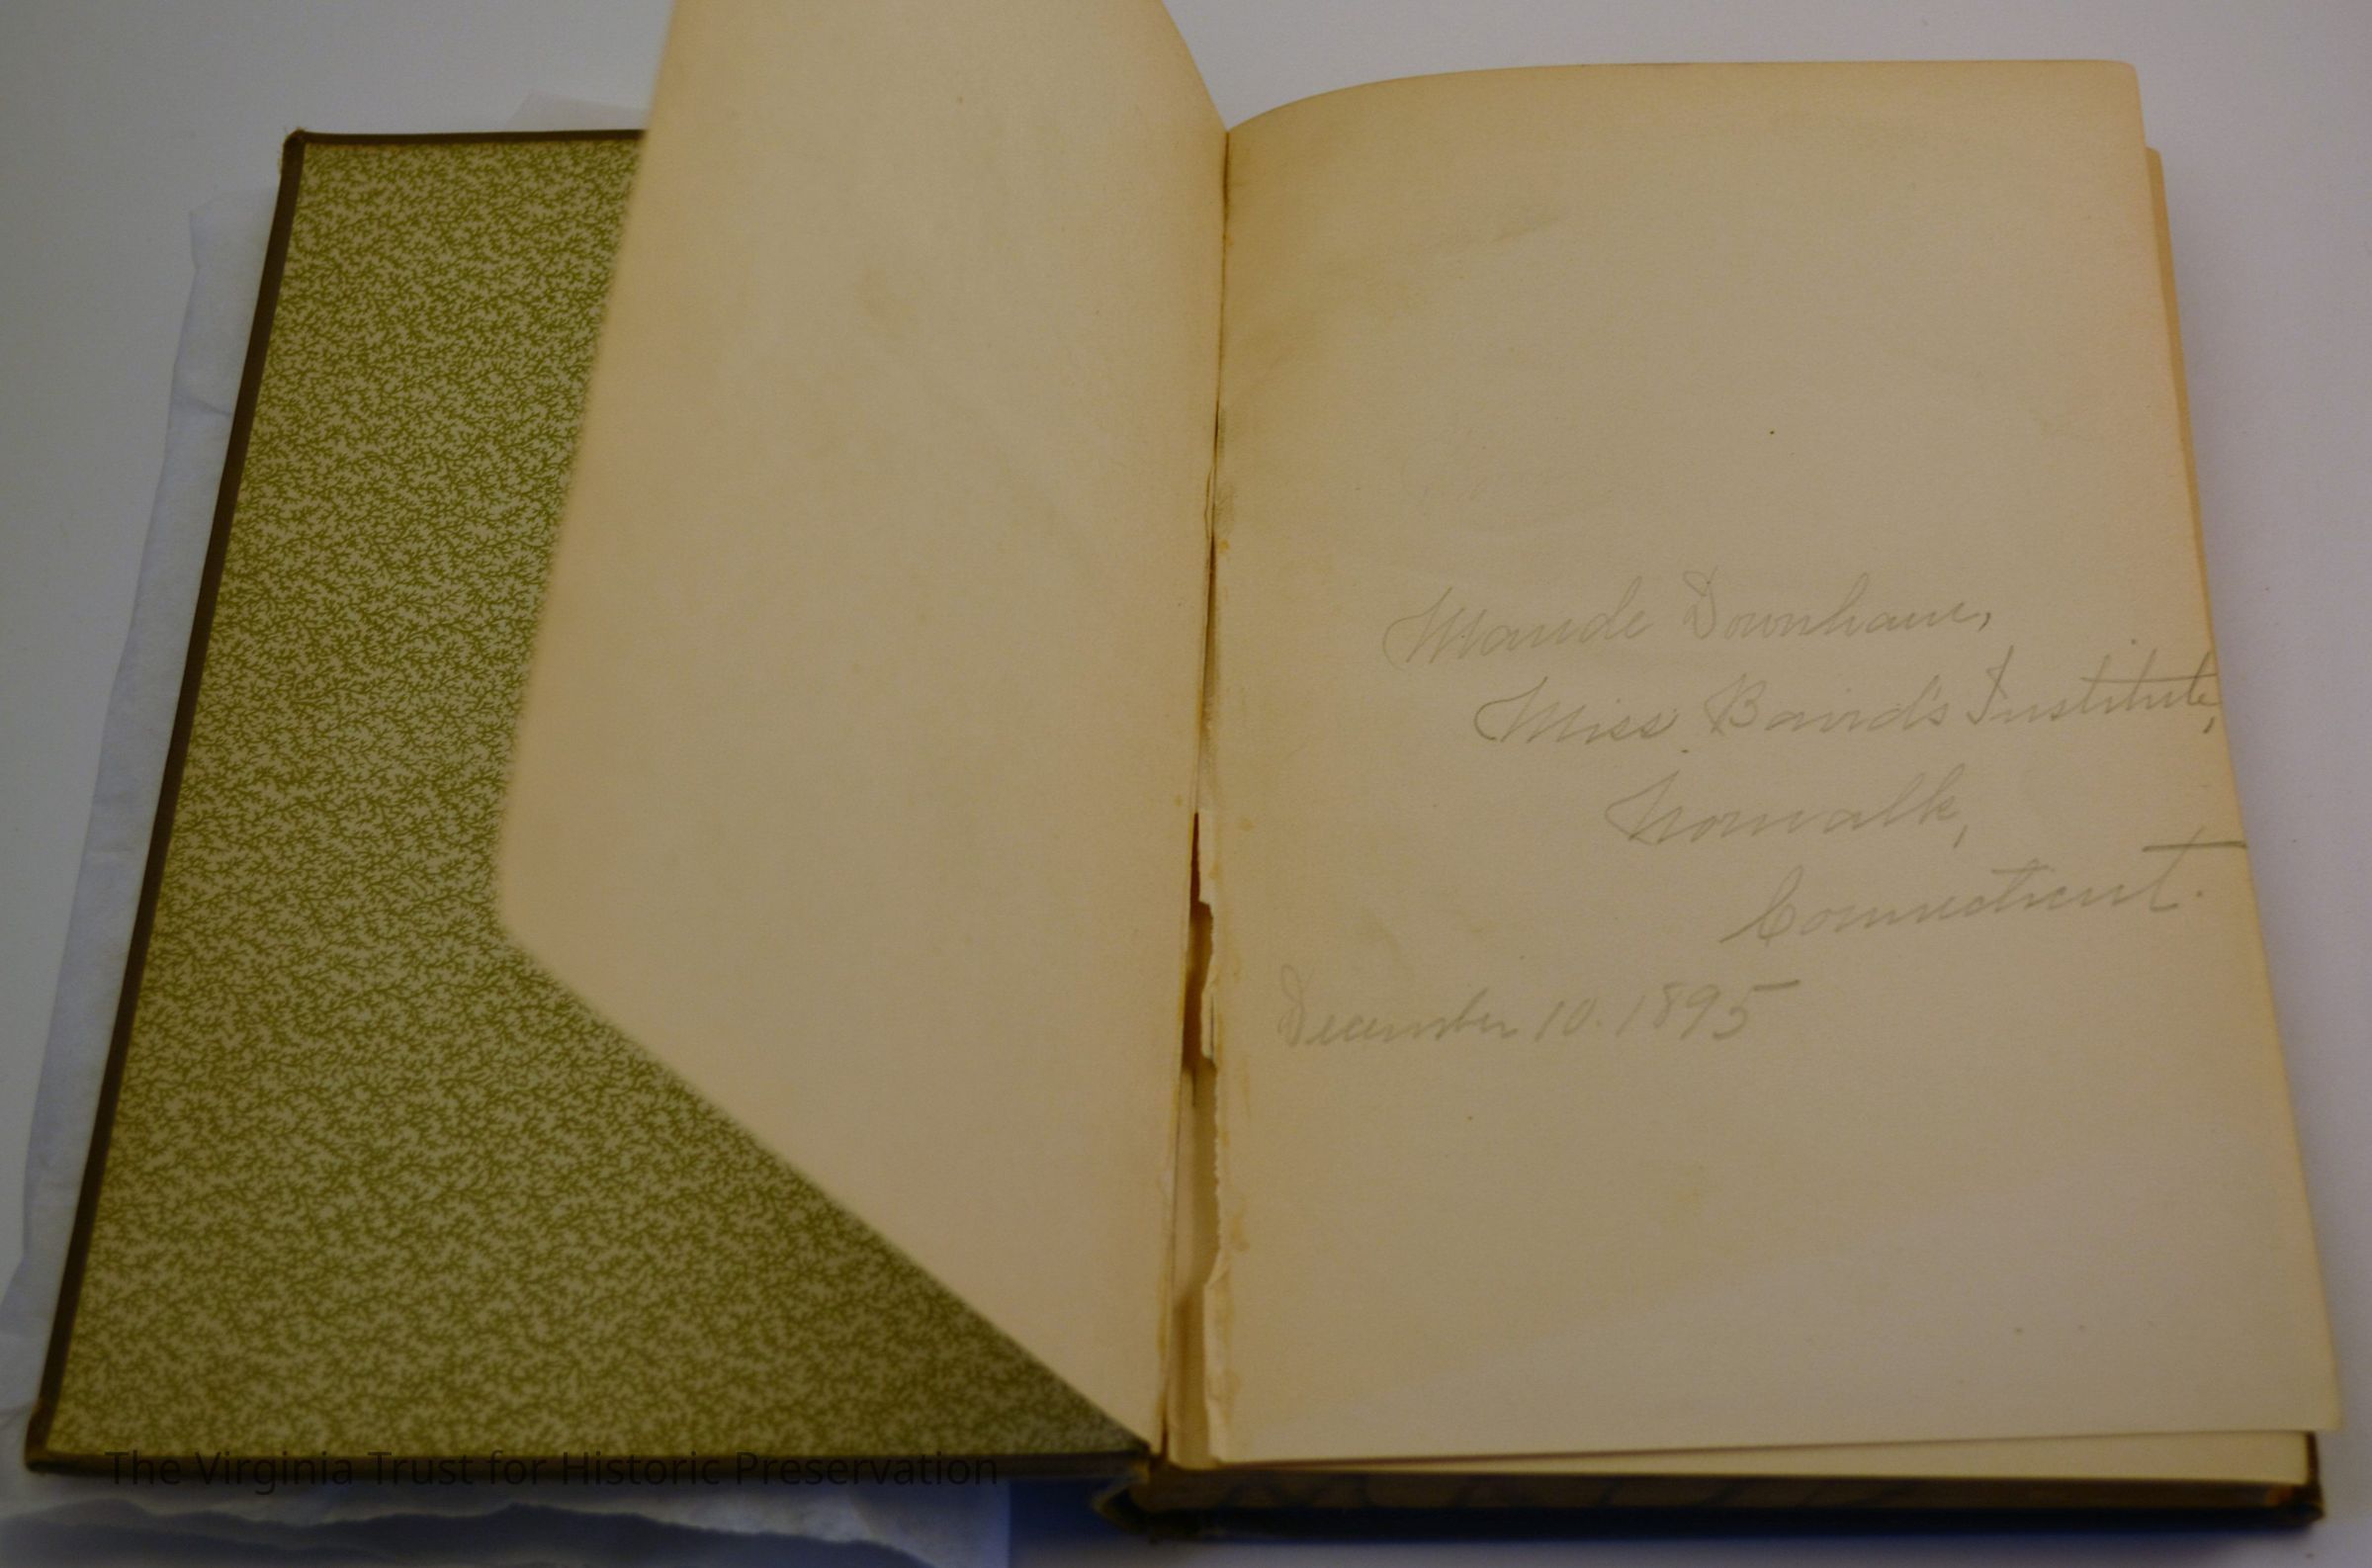 Maude Downham,
Miss Baird's Institute,
Norwalk,
Connecticut.
December 10. 1895
The Virginia Trust for Historic Preservation